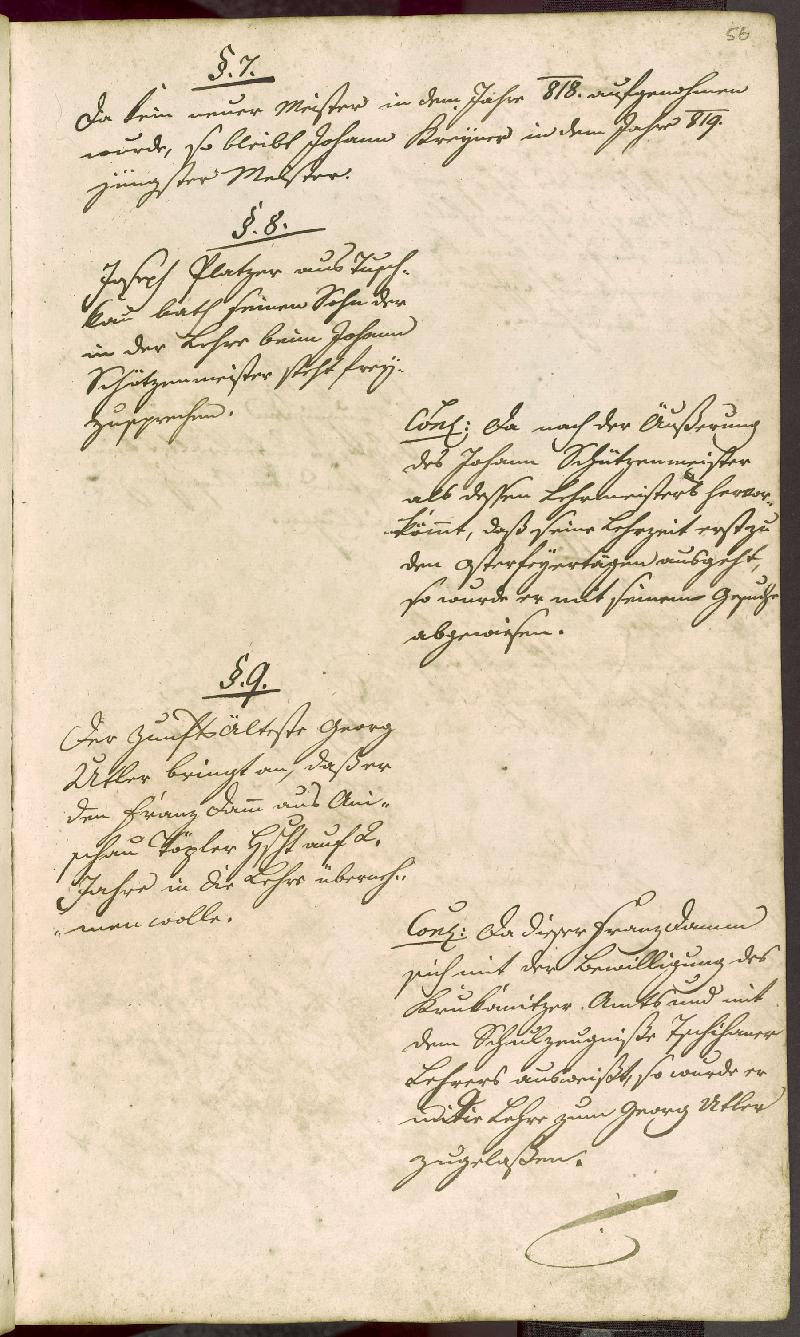 56
§. 7.
Da kein neuer Meister in dem Jahre 818. aufgenohmen
wurde, so bleibt Johann Kreyner in dem Jahre 819.
jüngster Meister.
§. 8.
Joseph Platzer aus Tusch-
kau bath seinen Sohn der
in der Lehre beim Johann
Schützenmeister steht frey-
zusprechen.
Concl: Da nach der Äußerung
des Johann Schützenmeister
als dessen Lehrmeisters hervor-
kömmt, daß seine Lehrzeit erst zu
den Osterfeyertägen ausgeht,
so wurde er mit seinem Gesuche
abgewiesen.
§. 9.
Der Zunftsälteste Georg
Utler bringt an, daß er
den Franz Dam̄ aus Ani-
schau Töpler Hscht auf 2.
Jahre in die Lehre überneh-
men wolle.
Concl: Da dieser Franz Damm
sich mit der Bewilligung des
Krukanitzer Amts und mit
dem Schulzeugniße
Lehrers ausweißt, so wurde er
in die Lehre zum Georg Utler
zugelaßen.